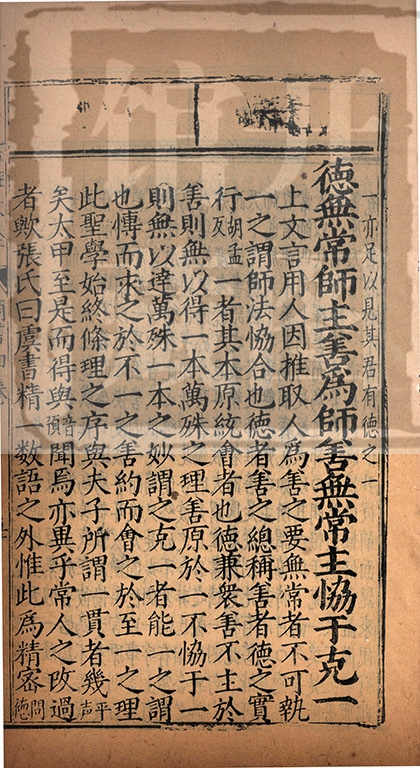 一亦足以見其君有德之一
德無常師主善爲師善無常主恊于克一
上文言用人因推取人爲善之要無常者不可執
一之謂師法恊合也德者善之總稱善者德之實
行胡孟反一者其本原統會者也德兼衆善不主於
善則無以得一本萬殊之理善原於一不恊于一
則無以達萬殊一本之妙謂之克一者能一之謂
也慱而求之於不一之善約而會之於至一之理
此聖學始終條理之序與夫子所謂一貫者幾平声
矣太甲至是而得與音預聞焉亦異乎常人之改過
者歟張氏曰虞書精一數語之外惟此爲精密問德